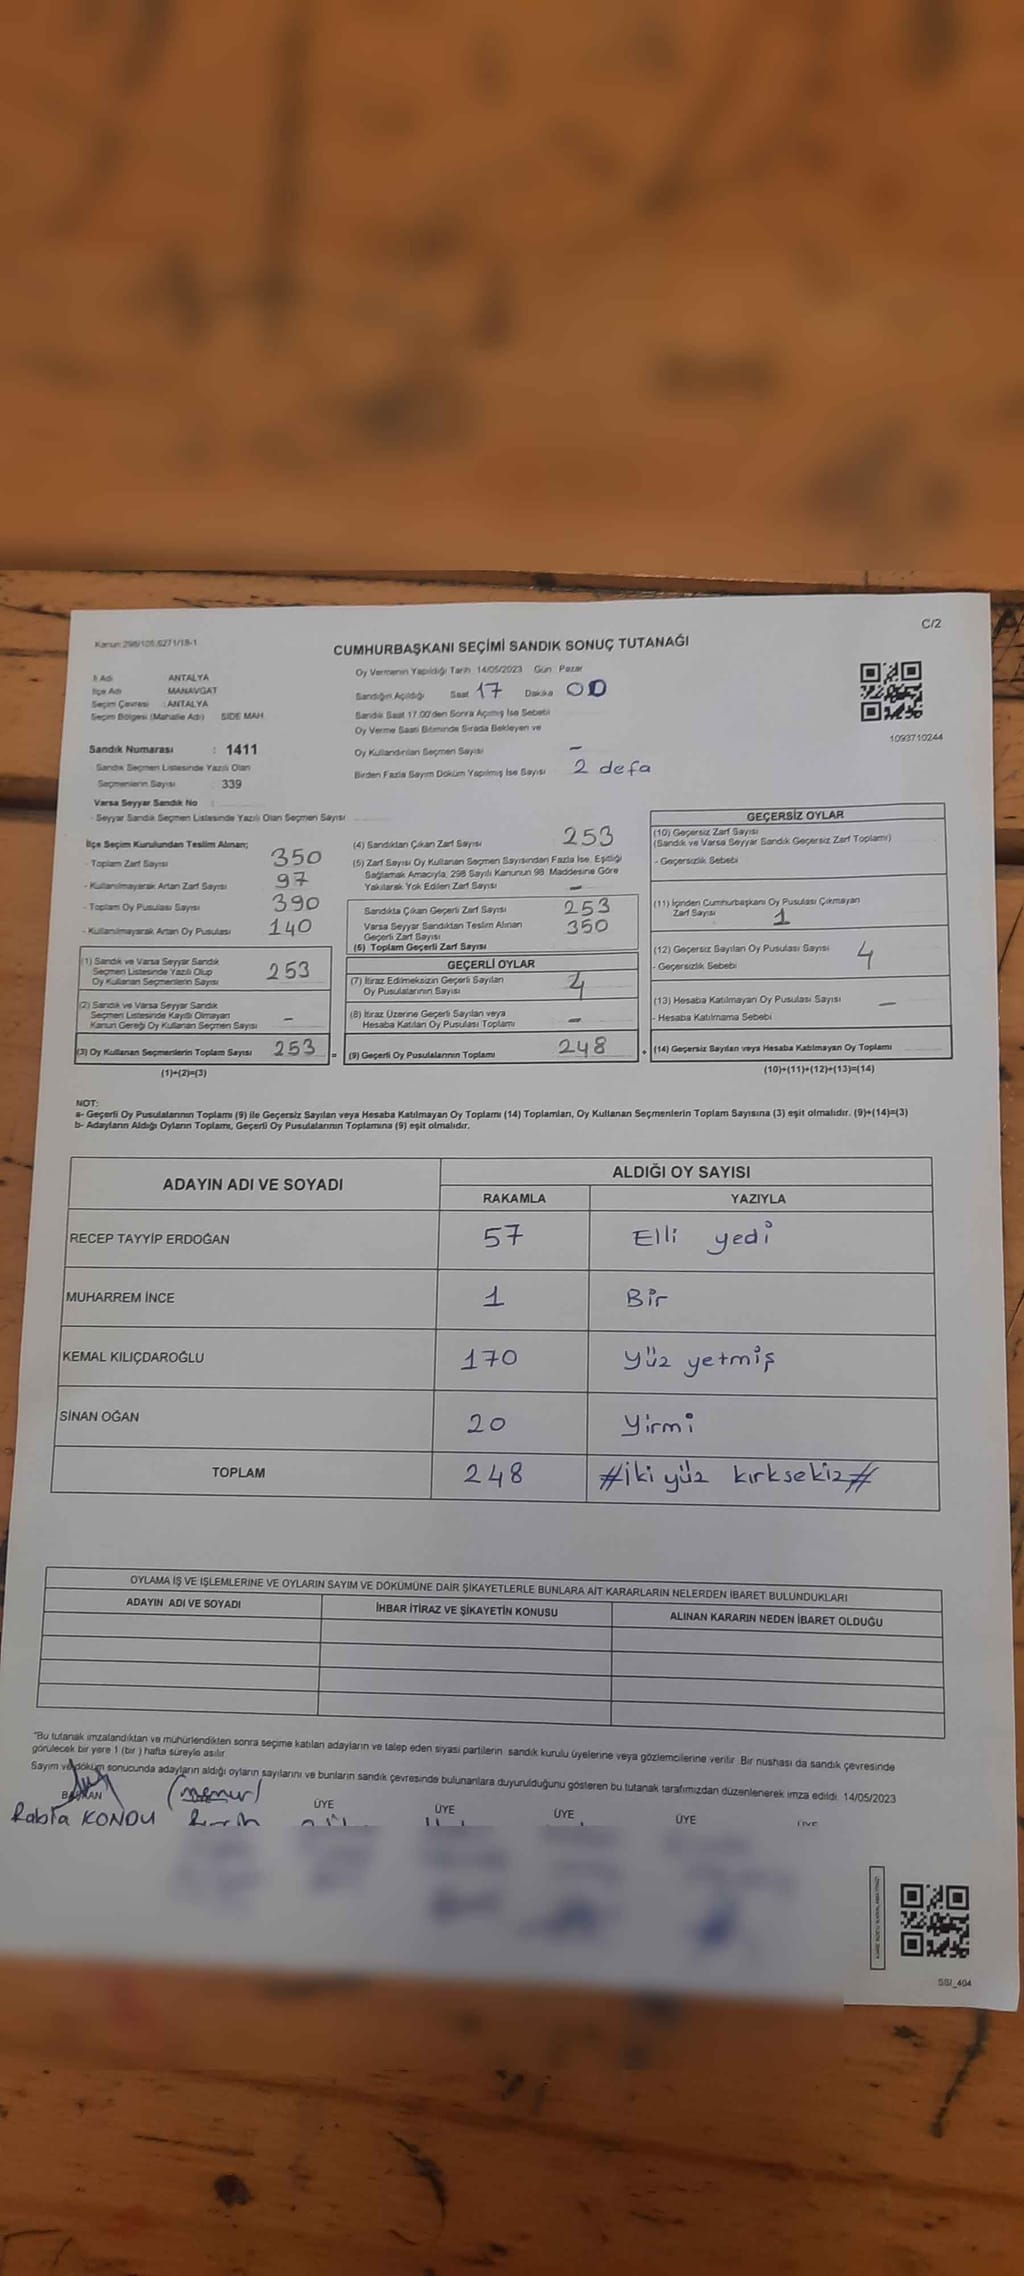 C/2
Kanun:298/105,6271/18-1
CUMHURBAŞKANI SEÇİMİ SANDIK SONUÇ TUTANAĞI
İl Adı ANTALYA
İlçe Adı MANAVGAT
Seçim Çevresi : ANTALYA
Seçim Bölgesi (Mahalle Adı) SIDE MAH.
Oy Vermenin Yapıldığı Tarih 14/05/2023 Gün Pazar
Sandığın Açıldığı Saat 17 Dakika 00
Sandık Saat 17:00'den Sonra Açılmış İse Sebebi
Oy Verme Saati Bitiminde Sırada Bekleyen ve
Oy Kullandırılan Seçmen Sayısı -
Birden Fazla Sayım Döküm Yapılmış İse Sayısı 2 defa
1093710244
Sandık Numarası : 1411
- Sandık Seçmen Listesinde Yazılı Olan
Seçmenlerin Sayısı : 339
Varsa Seyyar Sandık No :
- Seyyar Sandık Seçmen Listesinde Yazılı Olan Seçmen Sayısı
İlçe Seçim Kurulundan Teslim Alınan;
- Toplam Zarf Sayısı 350
- Kullanılmayarak Artan Zarf Sayısı 97
- Toplam Oy Pusulası Sayısı 390
- Kullanılmayarak Artan Oy Pusulası 140
(1) Sandık ve Varsa Seyyar Sandık
Seçmen Listesinde Yazılı Olup
Oy Kullanan Seçmenlerin Sayısı 253
(2) Sandık ve Varsa Seyyar Sandık
Seçmen Listesinde Kayıtlı Olmayan
Kanun Gereği Oy Kullanan Seçmen Sayısı -
(3) Oy Kullanan Seçmenlerin Toplam Sayısı 253 =
(1)+(2)=(3)
(4) Sandıktan Çıkan Zarf Sayısı 253
(5) Zarf Sayısı Oy Kullanan Seçmen Sayısından Fazla İse, Eşitliği
Sağlamak Amacıyla, 298 Sayılı Kanunun 98. Maddesine Göre
Yakılarak Yok Edilen Zarf Sayısı -
Sandıkta Çıkan Geçerli Zarf Sayısı 253
Varsa Seyyar Sandıktan Teslim Alınan
Geçerli Zarf Sayısı 350
(6) Toplam Geçerli Zarf Sayısı
GEÇERLİ OYLAR
(7) İtiraz Edilmeksizin Geçerli Sayılan
Oy Pusulalarının Sayısı
(8) İtiraz Üzerine Geçerli Sayılan veya
Hesaba Katılan Oy Pusulası Toplamı -
(9) Geçerli Oy Pusulalarının Toplamı 248 +
GEÇERSİZ OYLAR
(10) Geçersiz Zarf Sayısı
(Sandık ve Varsa Seyyar Sandık Geçersiz Zarf Toplamı)
- Geçersizlik Sebebi
(11) İçinden Cumhurbaşkanı Oy Pusulası Çıkmayan
Zarf Sayısı 1
(12) Geçersiz Sayılan Oy Pusulası Sayısı 4
- Geçersizlik Sebebi
(13) Hesaba Katılmayan Oy Pusulası Sayısı -
- Hesaba Katılmama Sebebi
(14) Geçersiz Sayılan veya Hesaba Katılmayan Oy Toplamı
(10)+(11)+(12)+(13)=(14)
NOT:
a- Geçerli Oy Pusulalarının Toplamı (9) ile Geçersiz Sayılan veya Hesaba Katılmayan Oy Toplamı (14) Toplamları, Oy Kullanan Seçmenlerin Toplam Sayısına (3) eşit olmalıdır. (9)+(14)=(3)
b- Adayların Aldığı Oyların Toplamı, Geçerli Oy Pusulalarının Toplamına (9) eşit olmalıdır.
ADAYIN ADI VE SOYADI ALDIĞI OY SAYISI
RAKAMLA YAZIYLA
RECEP TAYYİP ERDOĞAN 57 Elli yedi
MUHARREM İNCE 1 Bir
KEMAL KILIÇDAROĞLU 170 Yüz yetmiş
SİNAN OĞAN 20 Yirmi
TOPLAM 248 #İki yüz kırksekiz#
OYLAMA İŞ VE İŞLEMLERİNE VE OYLARIN SAYIM VE DÖKÜMÜNE DAİR ŞİKAYETLERLE BUNLARA AİT KARARLARIN NELERDEN İBARET BULUNDUKLARI
ADAYIN ADI VE SOYADI İHBAR İTİRAZ VE ŞİKAYETİN KONUSU ALINAN KARARIN NEDEN İBARET OLDUĞU
"Bu tutanak imzalandıktan ve mühürlendikten sonra seçime katılan adayların ve talep eden siyasi partilerin sandık kurulu üyelerine veya gözlemcilerine verilir. Bir nüshası da sandık çevresinde
görülecek bir yere 1 (bir ) hafta süreyle asılır.
Sayım ve döküm sonucunda adayların aldığı oyların sayılarını ve bunların sandık çevresinde bulunanlara duyurulduğunu gösteren bu tutanak tarafımızdan düzenlenerek imza edildi. 14/05/2023
BAŞKAN (memur) ÜYE ÜYE ÜYE ÜYE ÜYE
Rabia KONDU
SSI_404